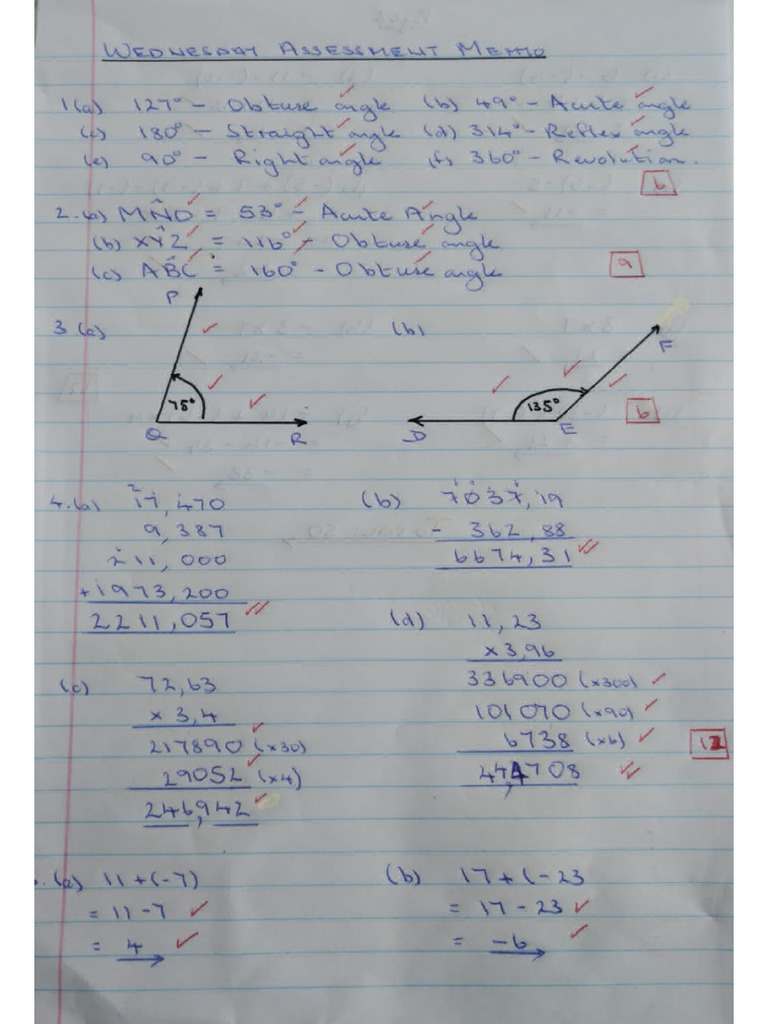 WEDNESDAY ASSESSMENT MEMO
1(a) 127° - Obtuse angle (b) 49° - Acute angle
(c) 180° - Straight angle (d) 314° - Reflex angle
(e) 90° - Right angle (f) 360° - Revolution.
6
2.(a) MN̂O = 53° - Acute Angle
(b) XŶZ = 116° - Obtuse angle
(c) AB̂C = 160° - Obtuse angle
9
3 (a) P 75° Q R
(b) D 135° E F
6
4.(a) 17,470
9,387
211,000
+1973,200
2211,057
(b) 7037,19
- 362,88
6674,31
(c) 72,63
x 3,4
217890 (x30)
29052 (x4)
246,942
(d) 11,23
x 3,96
336900 (x300)
101070 (x90)
6738 (x6)
44,4708
12
(a) 11 + (-7)
= 11 - 7
= 4
(b) 17 + (- 23
= 17 - 23
= -6